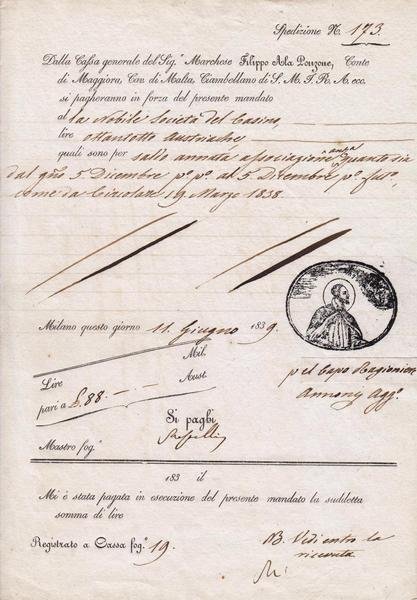 Spedizione N. 173.
Dalla Cassa generale del Sig.r Marchese Filippo Ala Ponzone, Conte
di Maggiora, Cav. di Malta, Ciambellano di S. M. I. R. A. ecc.
si pagheranno in forza del presente mandato
al la Nobile Società del Casino,
lire ottantotto Austriache,
quali sono per saldo annata associazione
dal 5 Dicembre p.o p.o al 5 Dicembre p.o fut.o,
come da Circolare 19 Marzo 1838.
Milano questo giorno 11. Giugno 1839.
Mil.
Lire
Aust.
pari a £.88 - - -
pel Capo Ragioniere
Agg.o
Si paghi
Mastro fog.o
183 il
Mi è stata pagata in esecuzione del presente mandato la suddetta
somma di lire
Registrato a Cassa fog.o 19.
NB. Vedi entro la
ricevuta